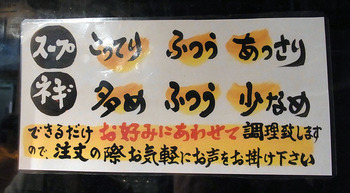 スープ こってり ふつう あっさり
ネギ 多め ふつう 少なめ
できるだけ お好みにあわせて 調理致します
ので、注文の際お気軽にお声をお掛け下さい